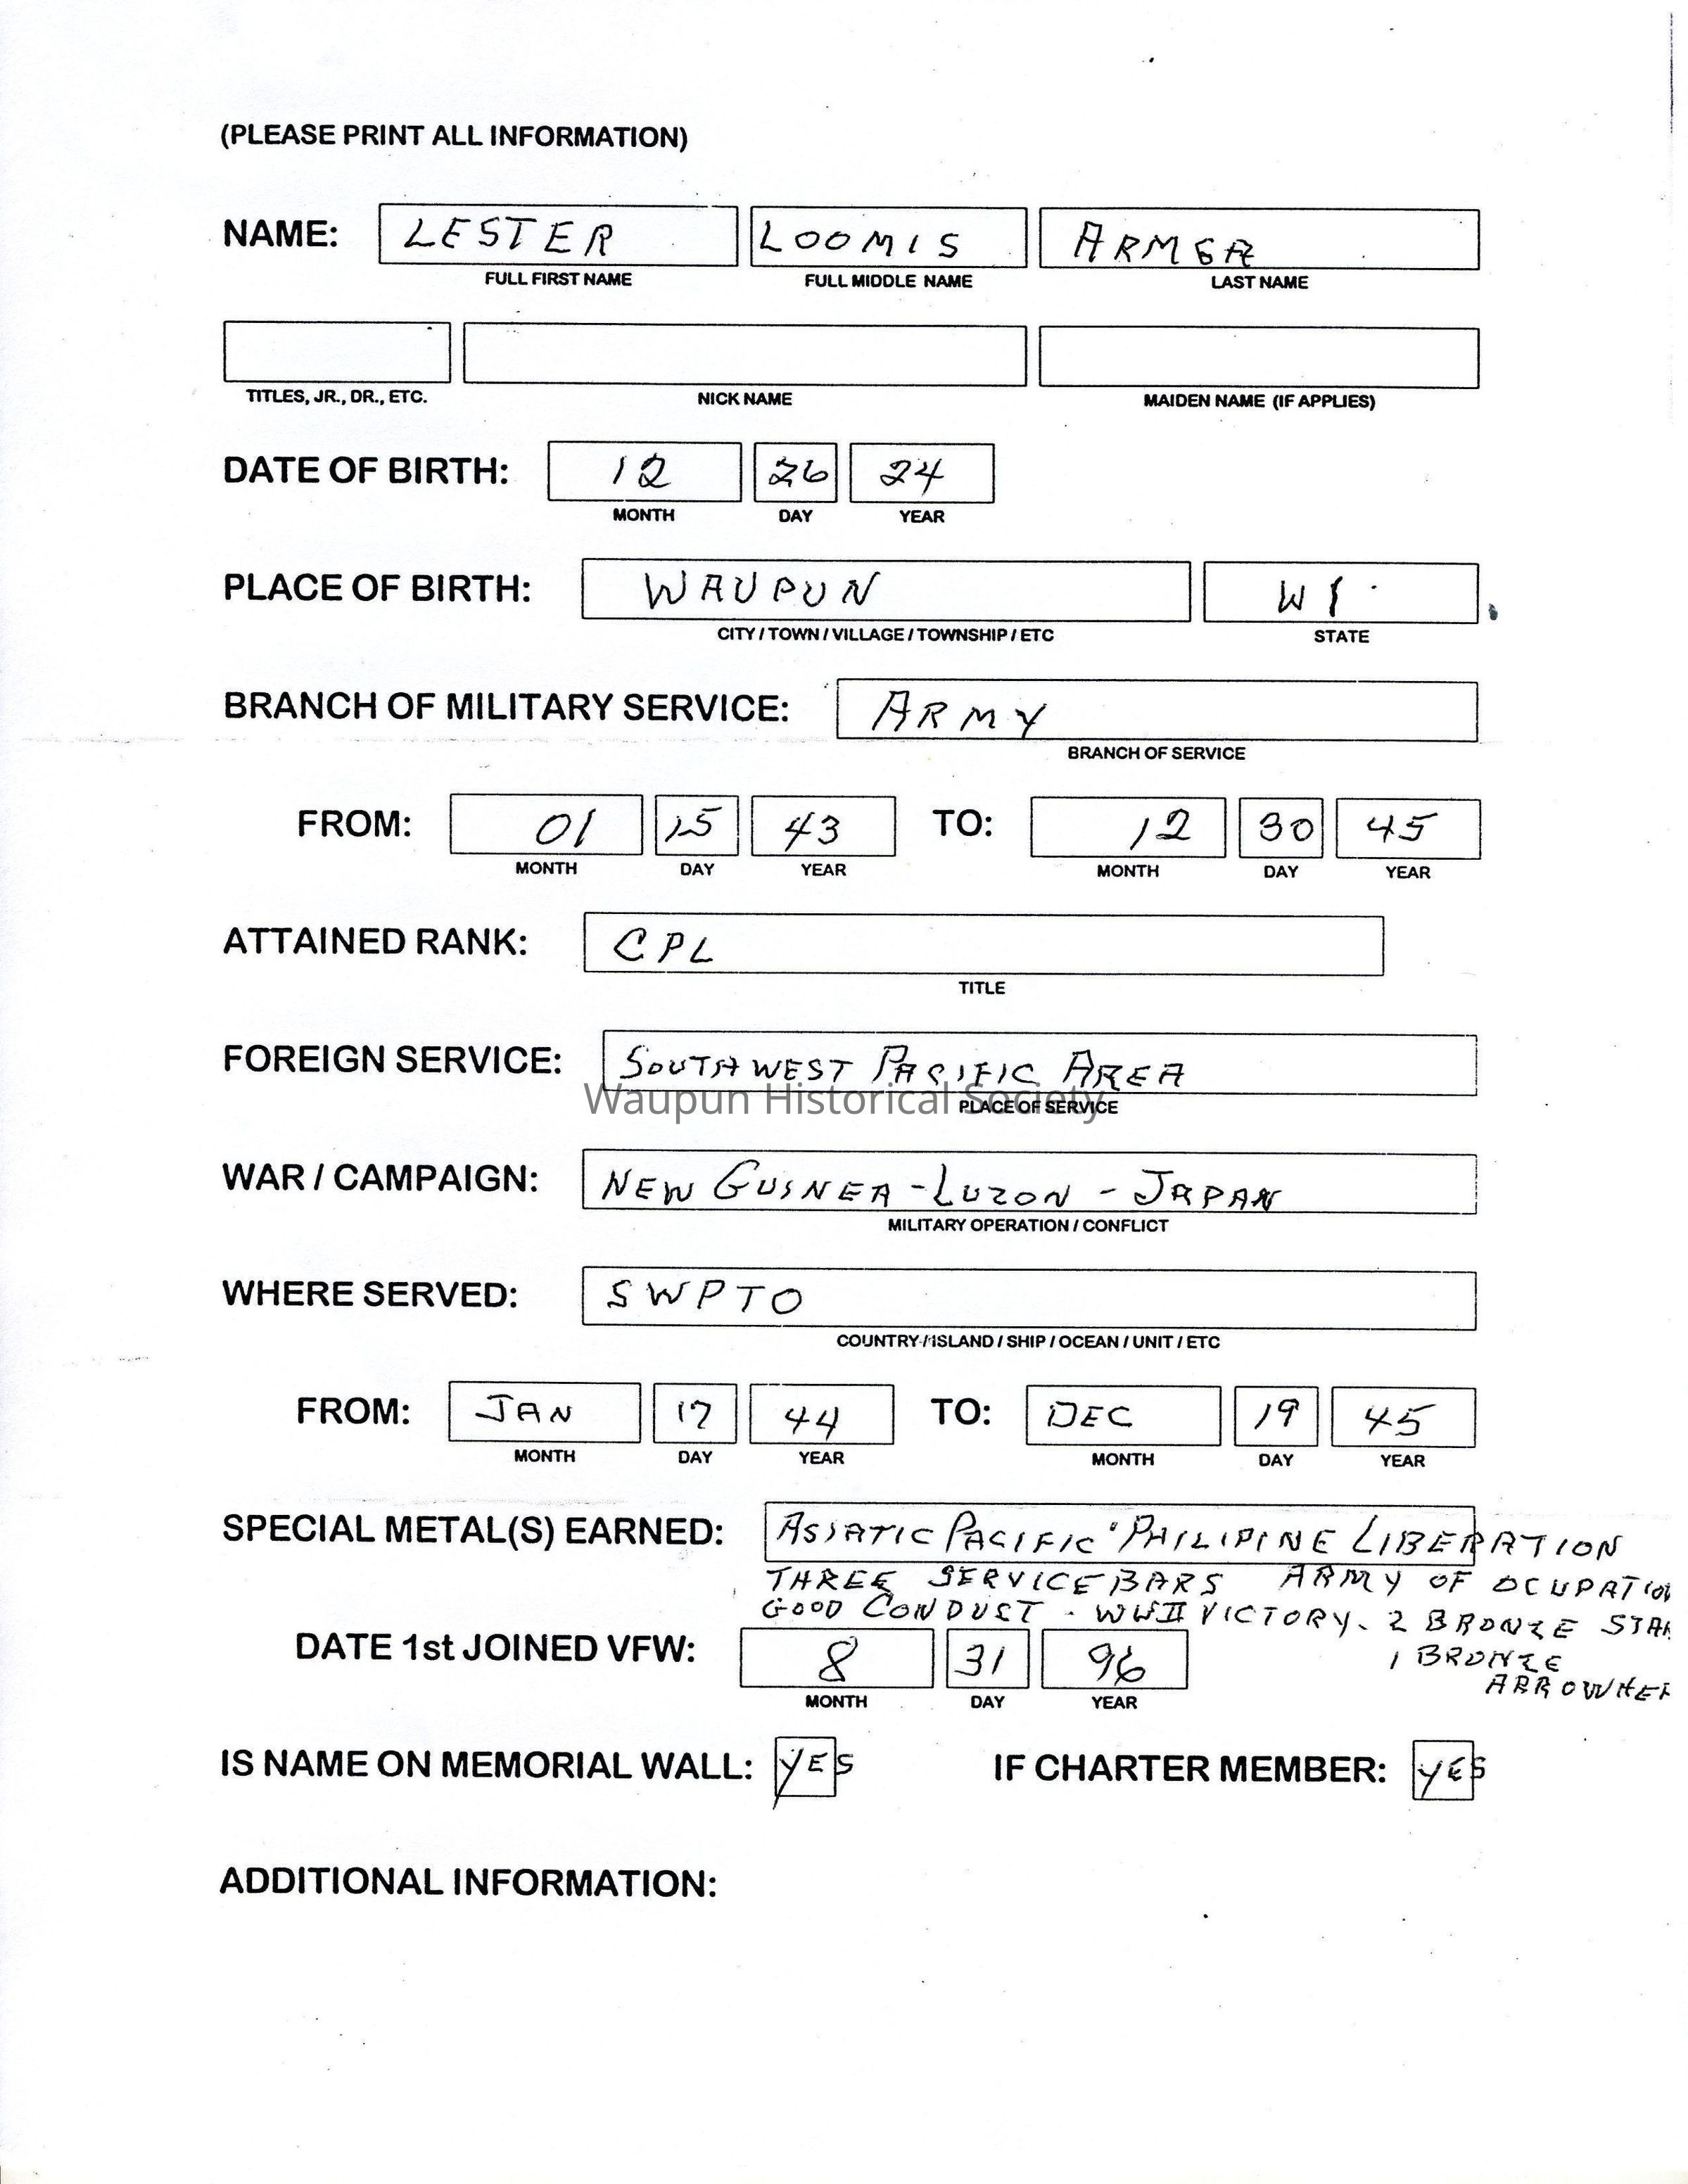 (PLEASE PRINT ALL INFORMATION)
NAME: LESTER LOOMIS ARMGA
FULL FIRST NAME FULL MIDDLE NAME LAST NAME
TITLES, JR., DR., ETC. NICK NAME MAIDEN NAME (IF APPLIES)
DATE OF BIRTH: 12 26 24
MONTH DAY YEAR
PLACE OF BIRTH: WAUPUN WI
CITY / TOWN / VILLAGE / TOWNSHIP / ETC STATE
BRANCH OF MILITARY SERVICE: ARMY
BRANCH OF SERVICE
FROM: 01 15 43 TO: 12 30 45
MONTH DAY YEAR MONTH DAY YEAR
ATTAINED RANK: CPL
TITLE
FOREIGN SERVICE: SOUTHWEST PACIFIC AREA
Waupun Historical Society
PLACE OF SERVICE
WAR / CAMPAIGN: NEW GUINEA - LUZON - JAPAN
MILITARY OPERATION / CONFLICT
WHERE SERVED: SWPTO
COUNTRY / ISLAND / SHIP / OCEAN / UNIT / ETC
FROM: JAN 17 44 TO: DEC 19 45
MONTH DAY YEAR MONTH DAY YEAR
SPECIAL METAL(S) EARNED: ASIATIC PACIFIC PHILIPINE LIBERATION
THREE SERVICE BARS ARMY OF OCUPATION
GOOD CONDUCT - WWII VICTORY - 2 BRONZE STAR
DATE 1st JOINED VFW: 8 31 96 1 BRONZE
ARROWHEA
MONTH DAY YEAR
IS NAME ON MEMORIAL WALL: YES IF CHARTER MEMBER: YES
ADDITIONAL INFORMATION: